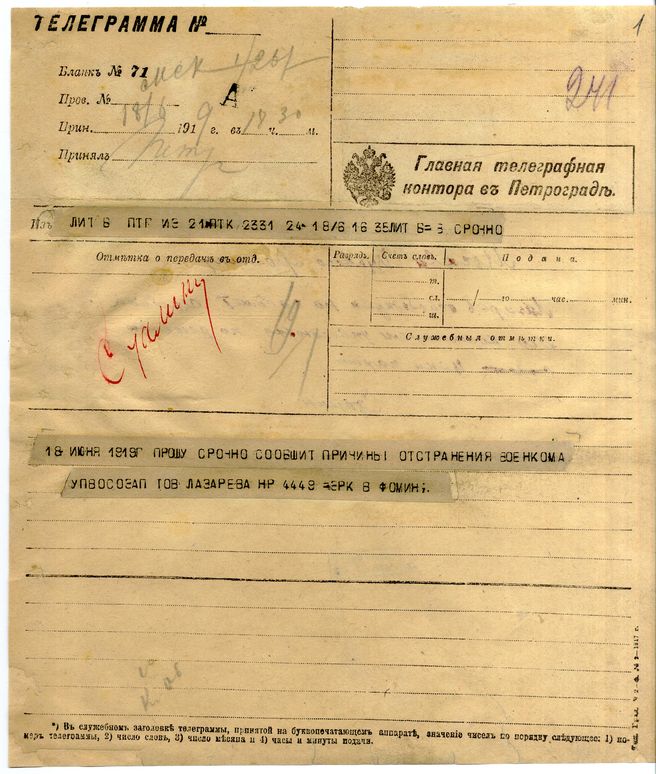 1
ТЕЛЕГРАММА №
Бланкъ № 71
241
Пров. №
А
18/6
Прин. 1919 г. въ 18 ч. 30 м.
Принялъ
Главная телеграфная
контора въ Петроградѣ.
Изъ ЛИТ Б ПТГ ИЗ 21 ПТК 2331 24 18/6 16 35 ЛИТ Б= Б СРОЧНО
Отмѣтка о передачѣ въ отд.
Разрядъ.
Счетъ словъ.
Подана.
т.
сл.
го час. мин.
ш.
Служебныя отмѣтки.
Сталину
19/
18 ИЮНЯ 1919Г ПРОШУ СРОЧНО СООБШИТ ПРИЧИНЫ ОТСТРАНЕНИЯ ВОЕНКОМА
УПВОСОЗАП ТОВ ЛАЗАРЕВА НР 4449 =ЕРК В ФОМИН;.
*) Въ служебномъ заголовкѣ телеграммы, принятой на буквопечатающемъ аппаратѣ, значеніе чиселъ по порядку слѣдующее: 1) но-
меръ телеграммы, 2) число словъ, 3) число мѣсяца и 4) часы и минуты подачи.